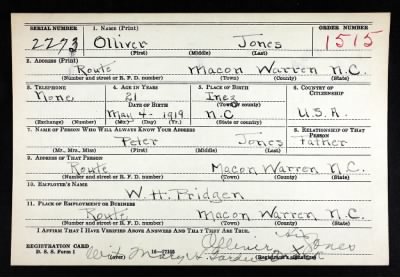 SERIAL NUMBER 1. NAME (Print) ORDER NUMBER
2273 Olliver Jones 1515
(First) (Middle) (Last)
2. ADDRESS (Print)
Route Macon Warren N.C.
(Number and street or R. F. D. number) (Town) (County) (State)
3. TELEPHONE 4. AGE IN YEARS 5. PLACE OF BIRTH 6. COUNTRY OF CITIZENSHIP
None 21 Inez
DATE OF BIRTH (Town or county)
May 4- 1919 N.C U.S.A.
(Exchange) (Number) (Mo.) (Day) (Yr.) (State or country)
7. NAME OF PERSON WHO WILL ALWAYS KNOW YOUR ADDRESS 8. RELATIONSHIP OF THAT PERSON
Peter Jones Father
(Mr., Mrs., Miss) (First) (Middle) (Last)
9. ADDRESS OF THAT PERSON
Route Macon Warren N.C.
(Number and street or R. F. D. number) (Town) (County) (State)
10. EMPLOYER'S NAME
W. H. Pridgen
11. PLACE OF EMPLOYMENT OR BUSINESS
Route Macon Warren N.C.
(Number and street or R. F. D. number) (Town) (County) (State)
I AFFIRM THAT I HAVE VERIFIED ABOVE ANSWERS AND THAT THEY ARE TRUE.
Olliver his Jones
REGISTRATION CARD
D. S. S. Form 1 Wit. Mary H.
(over) (Registrant's signature)